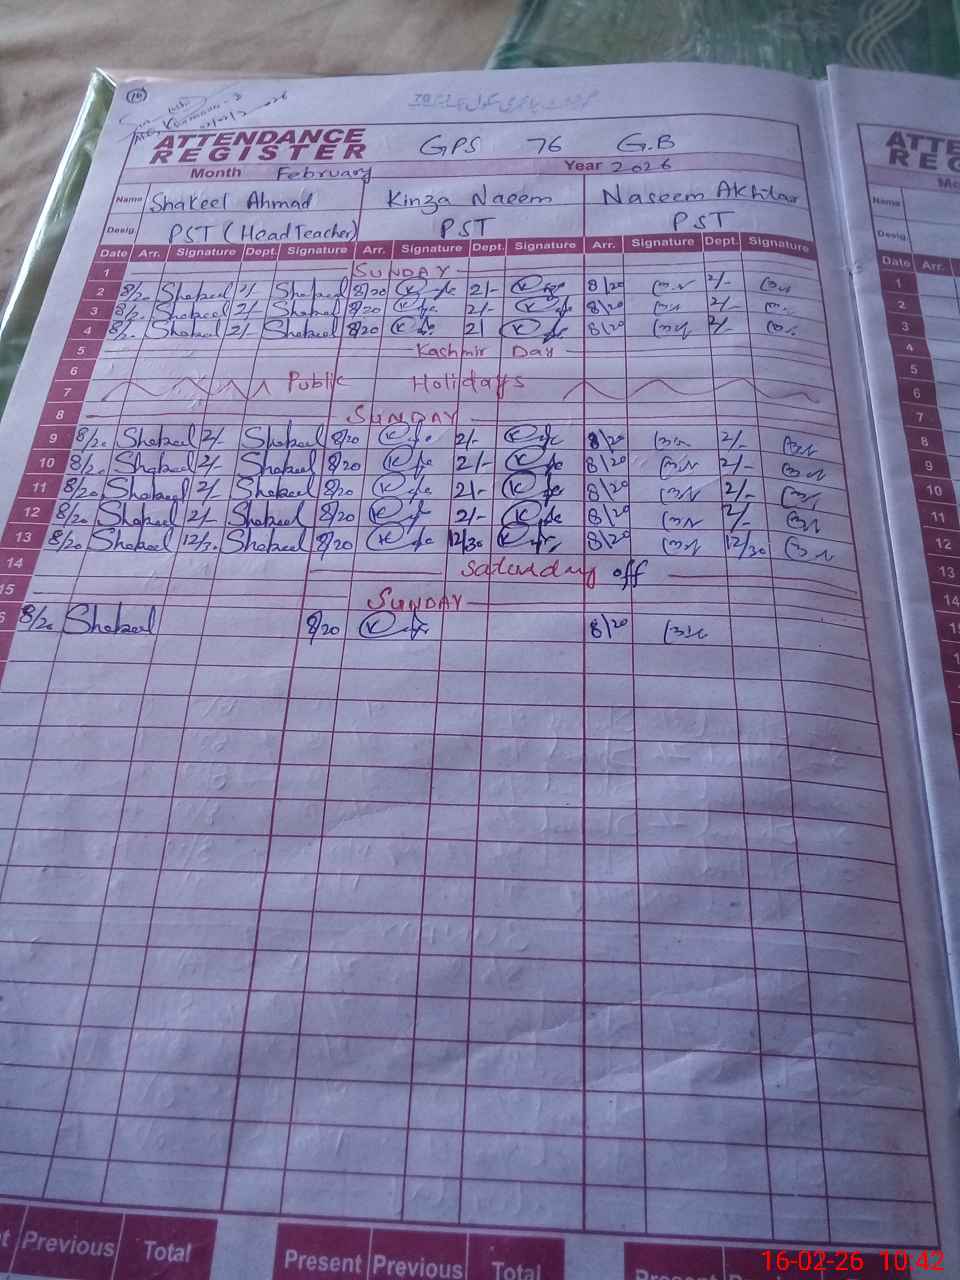 16
گورنمنٹ پرائمری سکول 76 گ ب
ATTENDANCE REGISTER GPS 76 G.B
Month February Year 2026
Name Shakeel Ahmad Kinza Naeem Naseem Akhtar
Desig. PST (Head Teacher) PST PST
Date Arr. Signature Dept. Signature Arr. Signature Dept. Signature Arr. Signature Dept. Signature
1 SUNDAY
2 8/20 Shakeel 2/- Shakeel 8/20 2/- 8/20 2/-
3 8/20 Shakeel 2/- Shakeel 8/20 2/- 8/20 2/-
4 8/20 Shakeel 2/- Shakeel 8/20 2/- 8/20 2/-
5 Kashmir Day
6
7 Public Holidays
8 SUNDAY
9 8/20 Shakeel 2/- Shakeel 8/20 2/- 8/20 2/-
10 8/20 Shakeel 2/- Shakeel 8/20 2/- 8/20 2/-
11 8/20 Shakeel 2/- Shakeel 8/20 2/- 8/20 2/-
12 8/20 Shakeel 2/- Shakeel 8/20 2/- 8/20 2/-
13 8/20 Shakeel 12/30 Shakeel 8/20 12/30 8/20 12/30
14 Saturday off
15 SUNDAY
6 8/20 Shakeel 8/20 8/20
Previous Total Present Previous Total Present Previous
ATTE
RE
Name
Desig.
Date Arr.
1
2
3
4
5
6
7
8
9
10
11
12
13
14
16-02-26 10:42